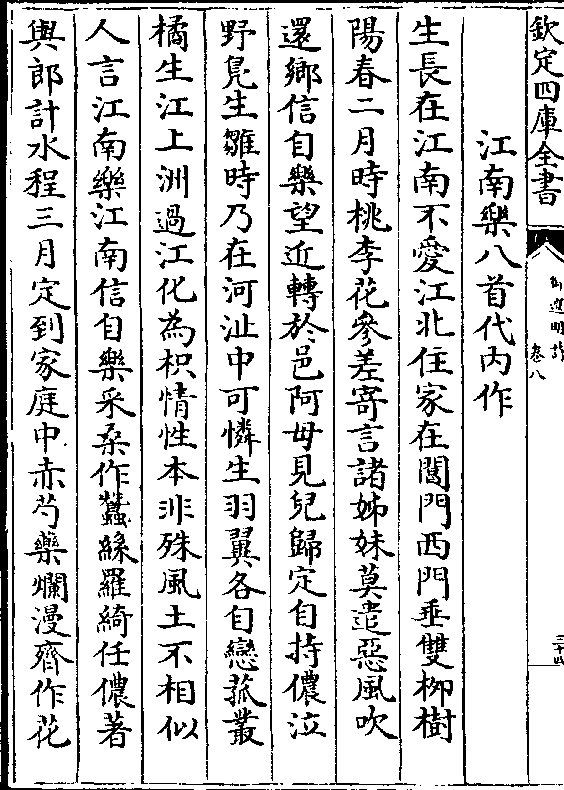 欽定四庫全書
御選明詩
卷八
三十四
江南樂八首代內作
生長在江南不愛江北住家在閶門西門垂雙栁樹
陽春二月時桃李花參差寄言諸姊妹莫遣惡風吹
還鄉信自樂望近轉於邑阿母見兒歸定自持儂泣
野鳬生雛時乃在河沚中可憐生羽翼各自戀菰叢
橘生江上洲過江化為枳情性本非殊風土不相似
人言江南樂江南信自樂采桑作蠶絲羅綺任儂著
與郎計水程三月定到家庭中赤芍藥爛漫齊作花